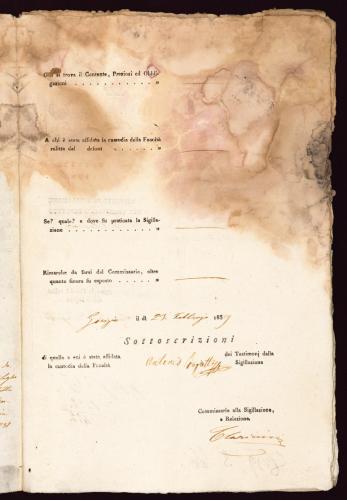 Ove si trova il Contante, Preziosi ed Obbli-
gazioni . . . . . . . . . . . . . . „
A chi è stata affidata la custodia della Facoltà
relitta del defont . . . . . . . „
Se? quale? e dove fu praticata la Sigilla-
zione . . . . . . . . . . . . . . . „
Rimarche da farsi del Commissario, oltre
quanto finora fu esposto . . . . . . „
il dì 23 Febbrajo 1839
Sottoscrizioni
di quello a cui è stata affidata
la custodia della Facoltà
Antonio
dei Testimonj della
Sigillazione
Commissario alla Sigillazione,
e Relazione.